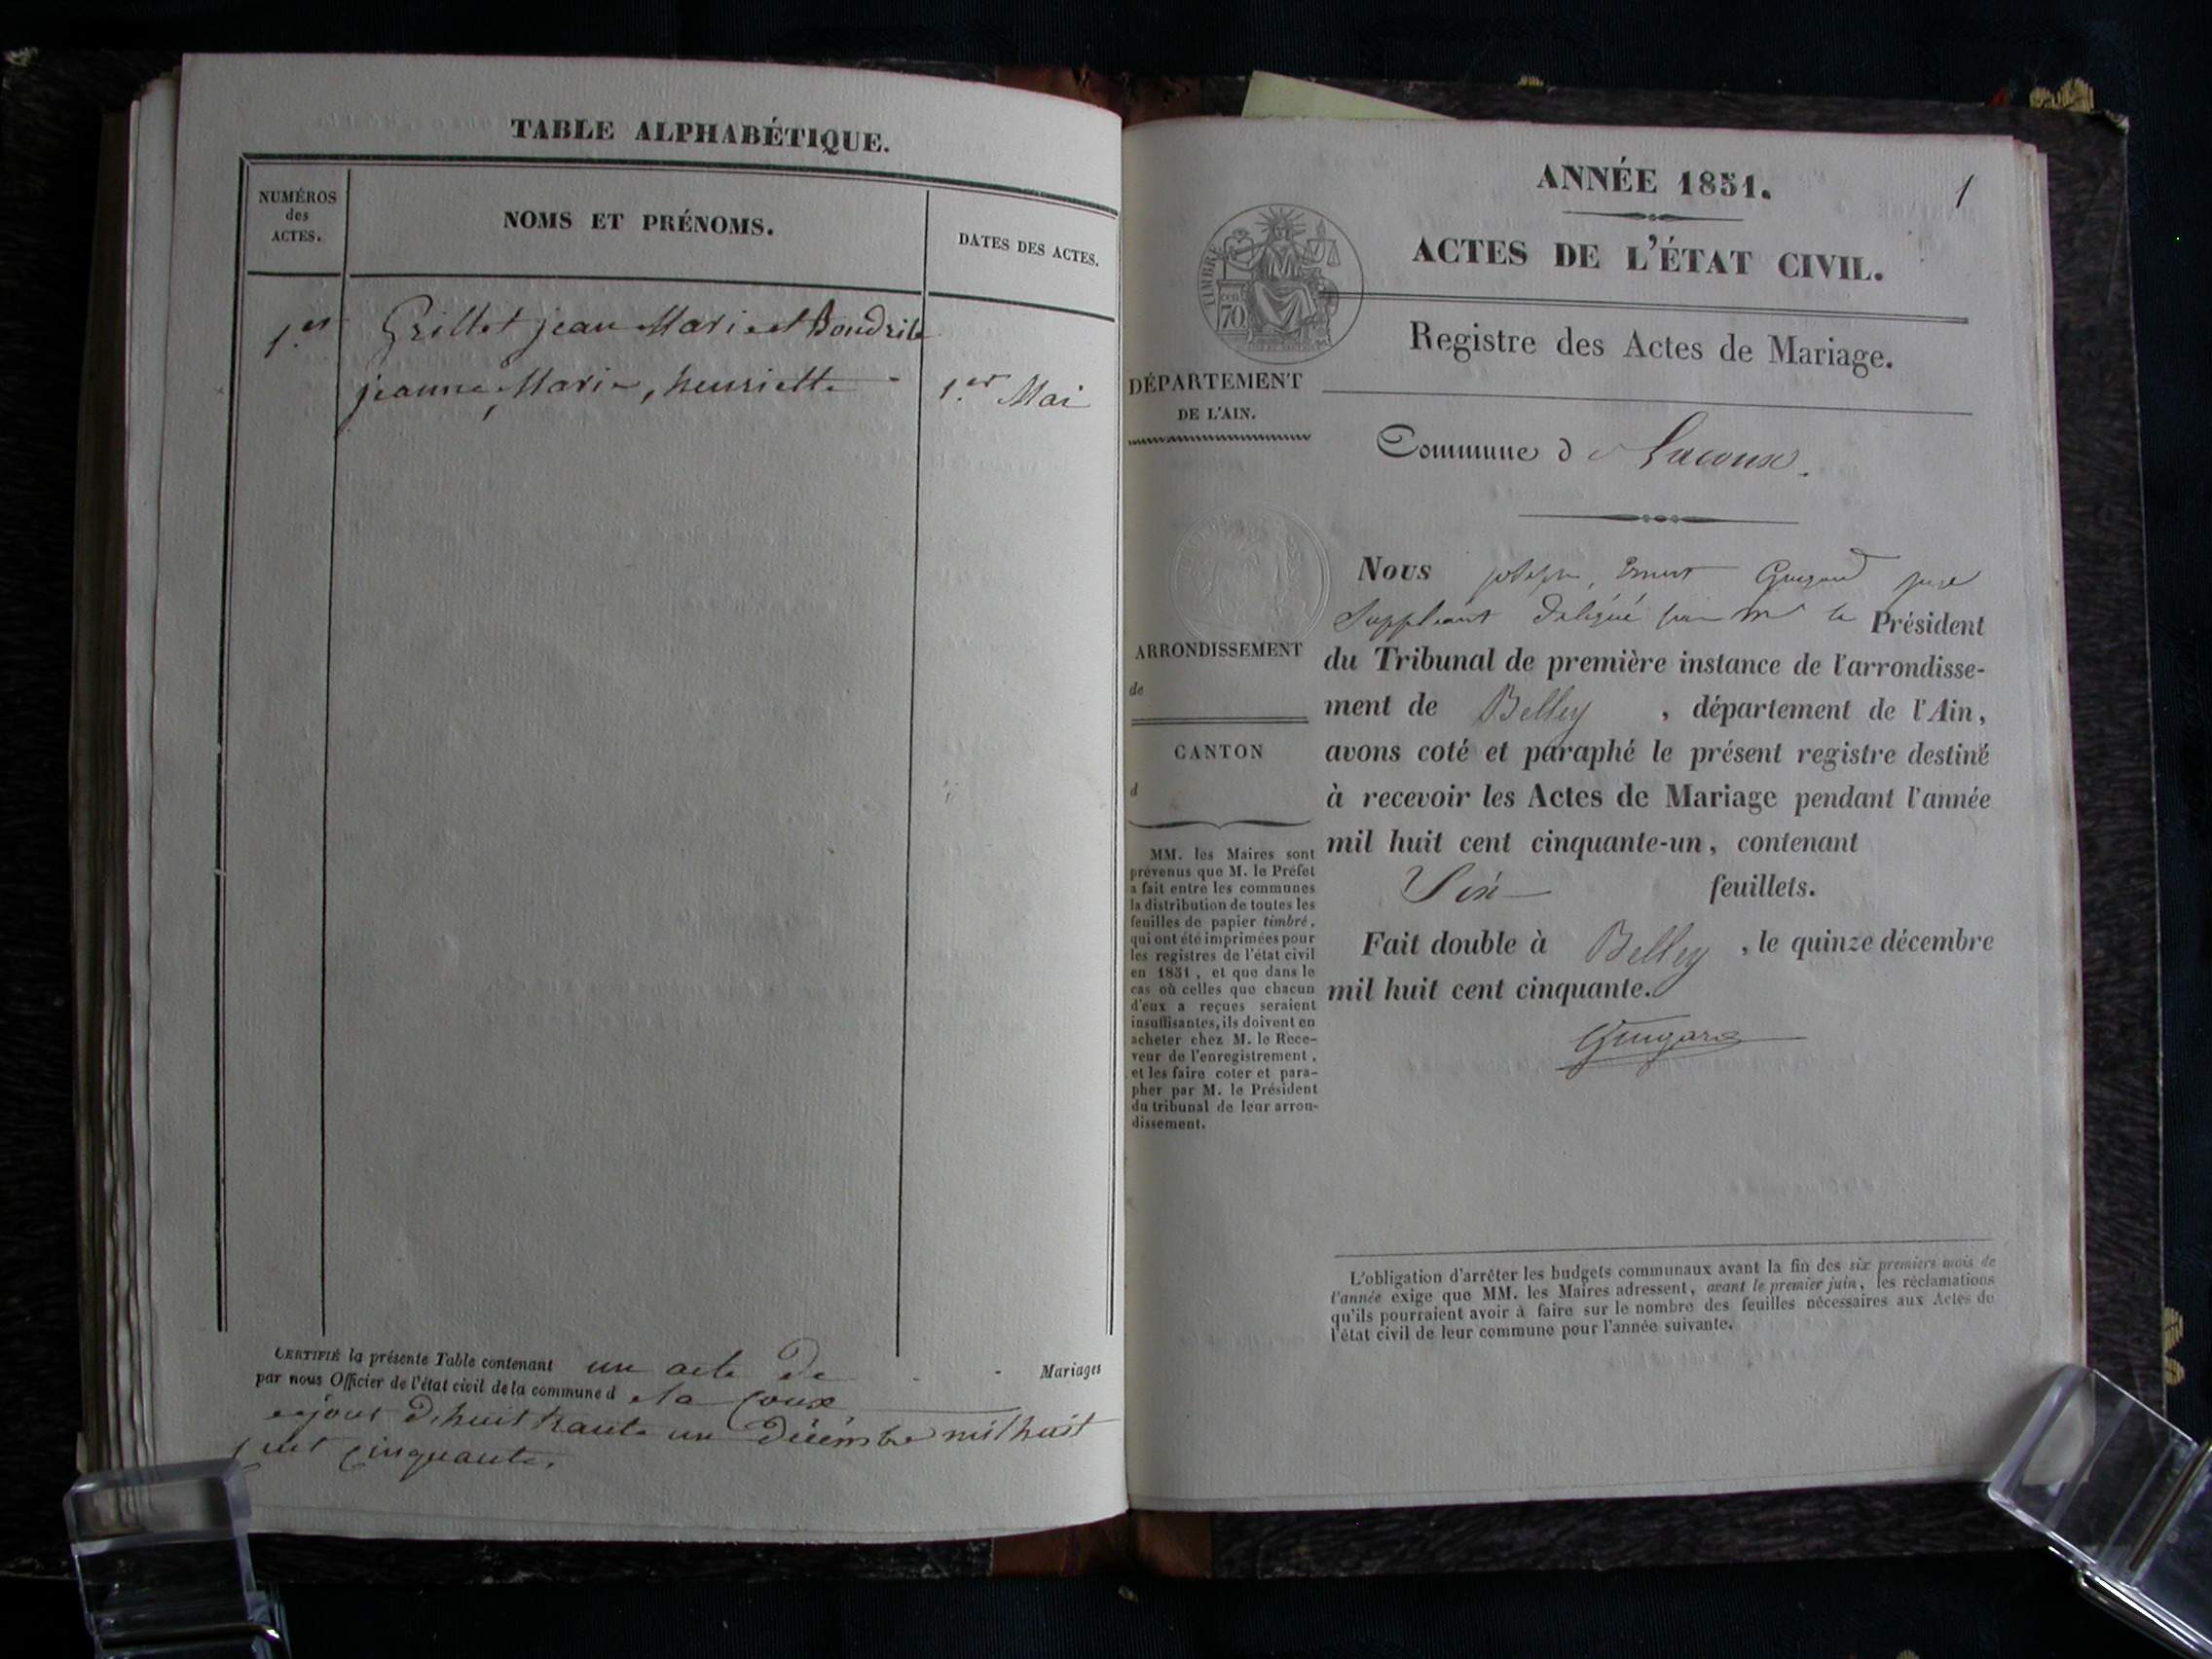 TABLE ALPHABÉTIQUE.
NUMÉROS
des
ACTES.
NOMS ET PRÉNOMS.
DATES DES ACTES.
1.er Grillet jean Marie et Bondrile
jeanne, Marie, henriette - 1.er Mai
CERTIFIÉ la présente Table contenant un acte de - - Mariages
par nous Officier de l'état civil de la commune d e la Coux
mil huit
cent cinquante.
1
ANNÉE 1851.
ACTES DE L'ÉTAT CIVIL.
TIMBRE
70
Registre des Actes de Mariage.
DÉPARTEMENT
DE L'AIN.
Commune d e Lacoux.
Nous joseph, Ernest juge
Suppléant délégué par Mr le Président
du Tribunal de première instance de l'arrondisse-
ment de Belley, département de l'Ain,
avons coté et paraphé le présent registre destiné
à recevoir les Actes de Mariage pendant l'année
mil huit cent cinquante-un, contenant
Six feuillets.
Fait double à Belley, le quinze décembre
mil huit cent cinquante.
ARRONDISSEMENT
de
CANTON
d
MM. les Maires sont
prévenus que M. le Préfet
a fait entre les communes
la distribution de toutes les
feuilles de papier timbré,
qui ont été imprimées pour
les registres de l'état civil
en 1851, et que dans le
cas où celles que chacun
d'eux a reçues seraient
insuffisantes, ils doivent en
acheter chez M. le Rece-
veur de l'enregistrement,
et les faire coter et para-
pher par M. le Président
du tribunal de leur arron-
dissement.
L'obligation d'arrêter les budgets communaux avant la fin des six premiers mois de
l'année exige que MM. les Maires adressent, avant le premier juin, les réclamations
qu'ils pourraient avoir à faire sur le nombre des feuilles nécessaires aux Actes de
l'état civil de leur commune pour l'année suivante.